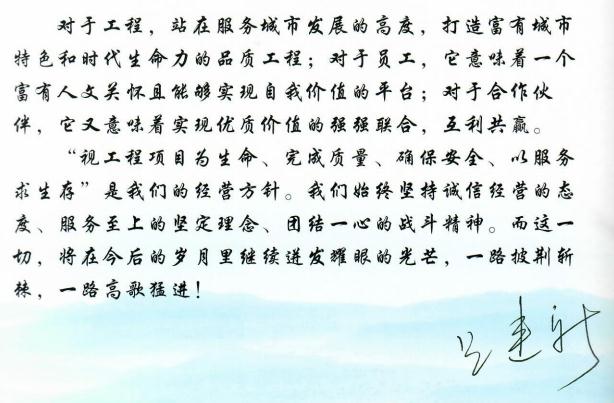 对于工程，站在服务城市发展的高度，打造富有城市
特色和时代生命力的品质工程；对于员工，它意味着一个
富有人文关怀且能够实现自我价值的平台；对于合作伙
伴，它又意味着实现优质价值的强强联合，互利共赢。
“视工程项目为生命、完成质量、确保安全、以服务
求生存”是我们的经营方针。我们始终坚持诚信经营的态
度、服务至上的坚定理念、团结一心的战斗精神。而这一
切，将在今后的岁月里继续迸发耀眼的光芒，一路披荆斩
棘，一路高歌猛进！